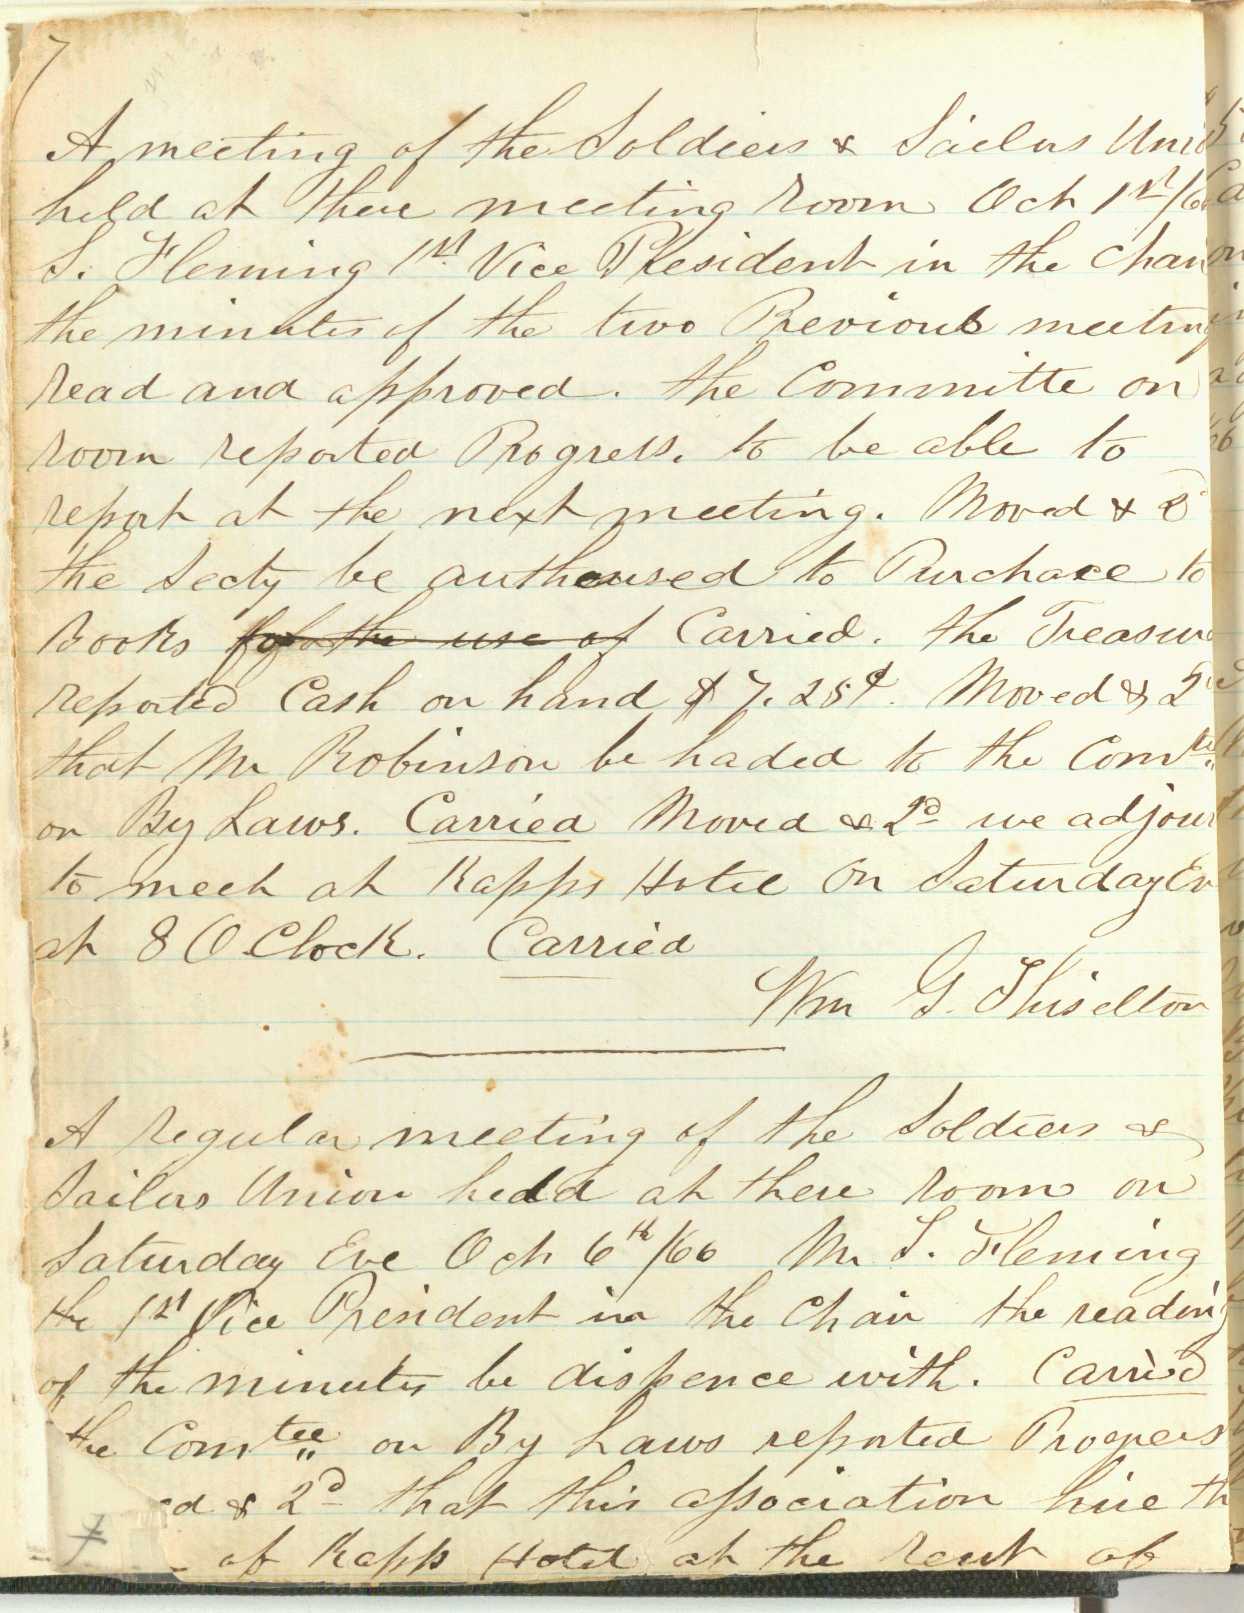 7
A meeting of the Soldiers & Sailors Unio
held at there meeting room Oct 1st/6
S. Fleming 1st Vice President in the Chair
the minutes of the two Previous meeting
read and approved. the Committe on
room reported Progress. to be able to
report at the next meeting. Moved & 2d
the Secty be authorused to Purchace to
Books for the use of Carried. the Treasure
reported Cash on hand $7.25¢. Moved & 2d
that Mr Robinson be haded to the Comtee
on By Laws. Carried Moved & 2d we adjour
to meet at Kapps Hotel On Saturday Ev
at 8 O Clock. Carried
Wm G. Thiselton
A regular meeting of the Soldiers &
Sailors Union held at there room on
Saturday Eve Oct 6th/66 Mr S. Fleming
the 1st Vice President in the Chair the reading
of the minutes be dispence with. Carried
the Comtee on By Laws reported Progress
ed & 2d that this association hire th
of Kapps Hotel at the rent of
7